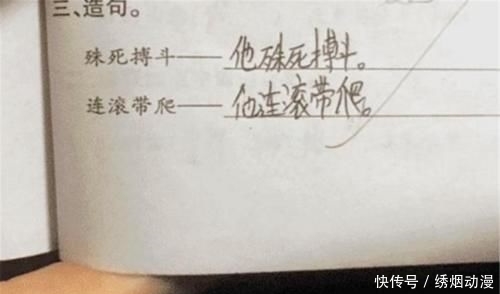 三、造句。
殊死搏斗——他殊死搏斗。
连滚带爬——他连滚带爬。
快传号/绣烟动漫